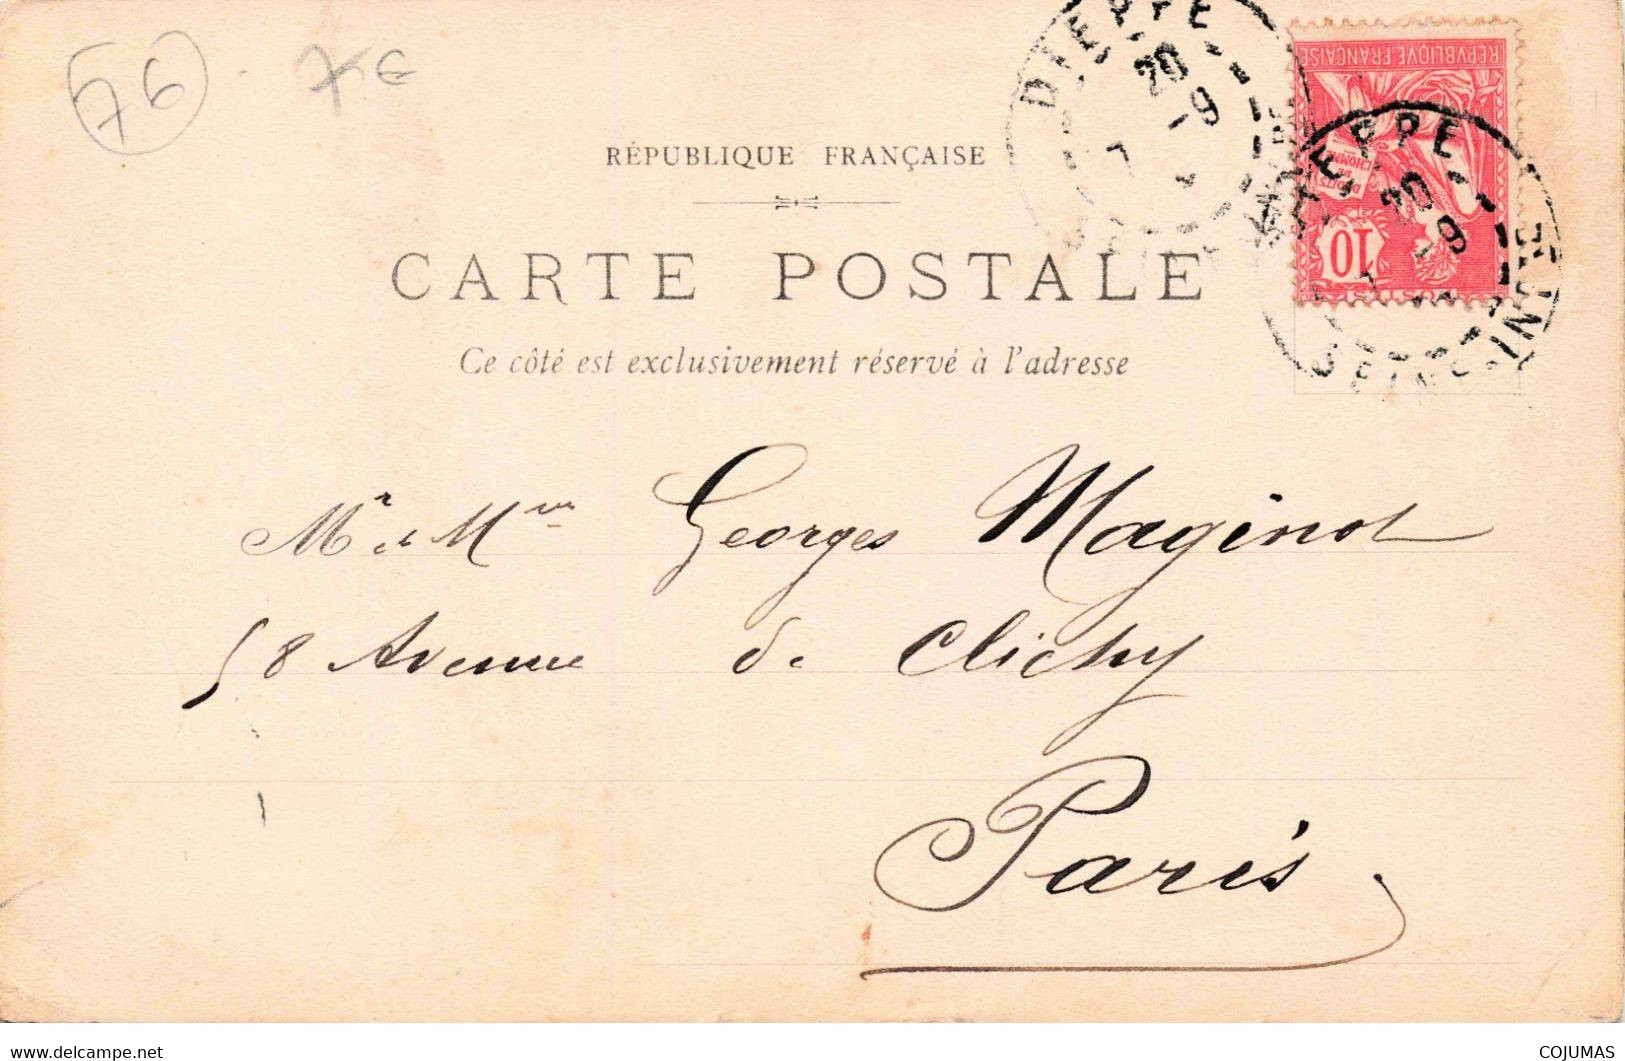 76
7€
RÉPUBLIQUE FRANÇAISE
CARTE POSTALE
Ce côté est exclusivement réservé à l'adresse
DIEPPE
20
-9
RÉPUBLIQUE FRANÇAISE
DROITS DE L'HOMME
10
DIEPPE
20
-9
SEINE INF
Mr et Mme Georges Maginot
58 Avenue de Clichy
Paris
www.delcampe.net
COJUMAS